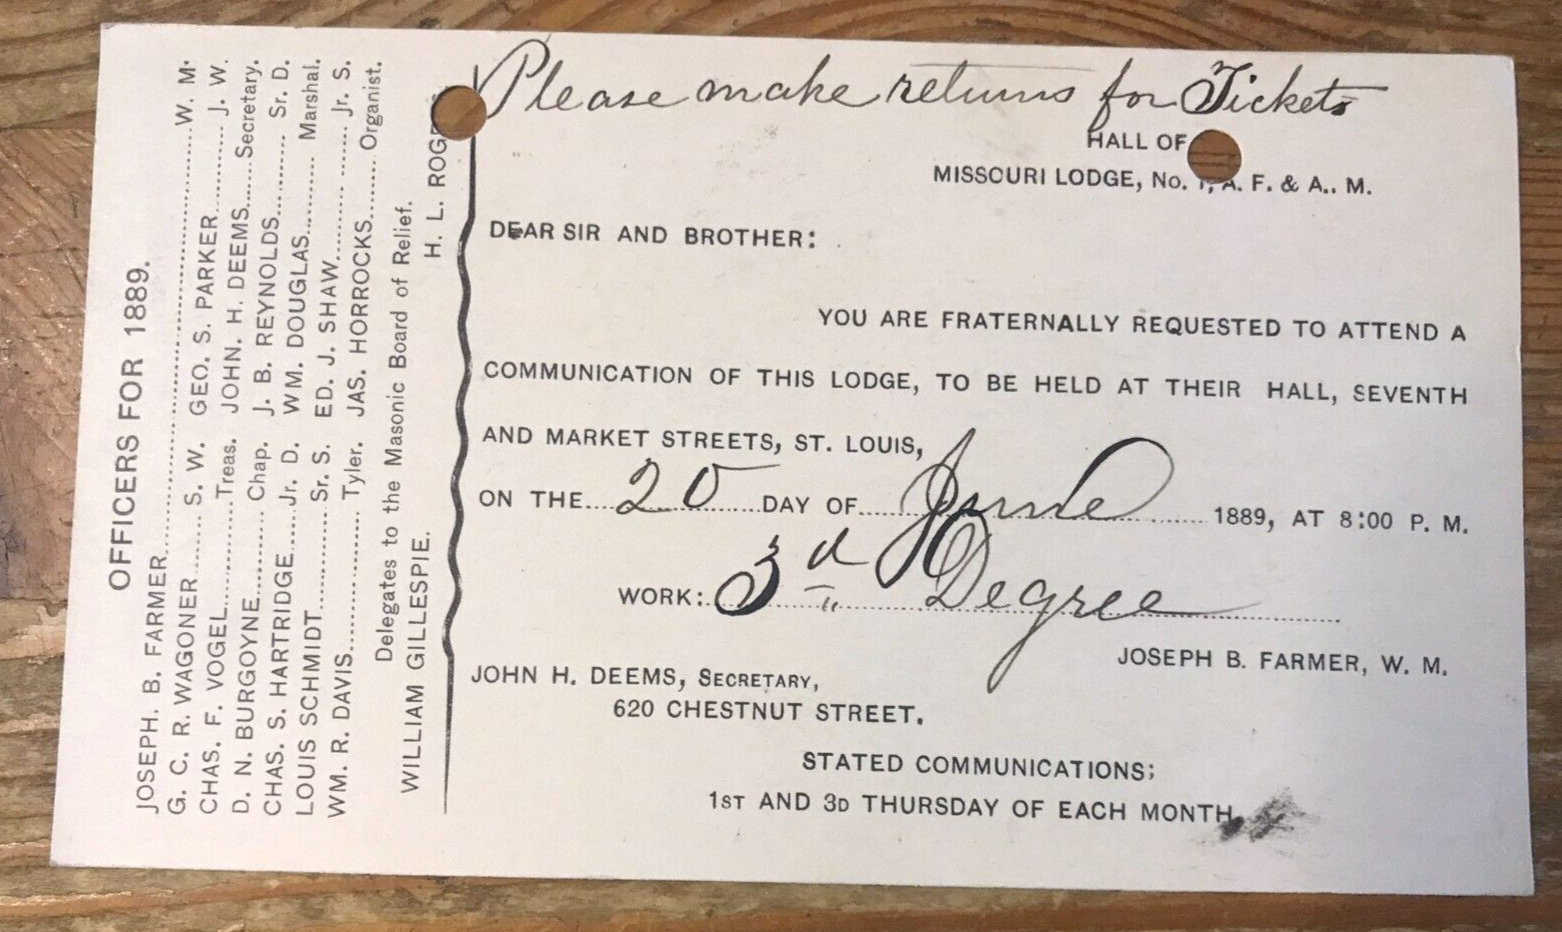 OFFICERS FOR 1889.
JOSEPH. B. FARMER......W. M.
G. C. R. WAGONER...... S. W. GEO. S. PARKER...... J. W.
CHAS. F. VOGEL......Treas. JOHN. H. DEEMS...... Secretary.
D. N. BURGOYNE...... Chap. J. B. REYNOLDS...... Sr. D.
CHAS. S. HARTRIDGE......Jr. D. WM. DOUGLAS...... Marshal.
LOUIS SCHMIDT...... Sr. S. ED. J. SHAW...... Jr. S.
WM. R. DAVIS...... Tyler. JAS. HORROCKS...... Organist.
Delegates to the Masonic Board of Relief.
WILLIAM GILLESPIE.
H. L.
Please make returns for Tickets
HALL OF
MISSOURI LODGE, No. 1, A. F. & A.. M.
DEAR SIR AND BROTHER:
YOU ARE FRATERNALLY REQUESTED TO ATTEND A
COMMUNICATION OF THIS LODGE, TO BE HELD AT THEIR HALL, SEVENTH
AND MARKET STREETS, ST. LOUIS,
ON THE....20......DAY OF....June...... 1889, AT 8:00 P. M.
WORK: 3d Degree
JOSEPH B. FARMER, W. M.
JOHN H. DEEMS, SECRETARY,
620 CHESTNUT STREET.
STATED COMMUNICATIONS;
1ST AND 3D THURSDAY OF EACH MONTH.